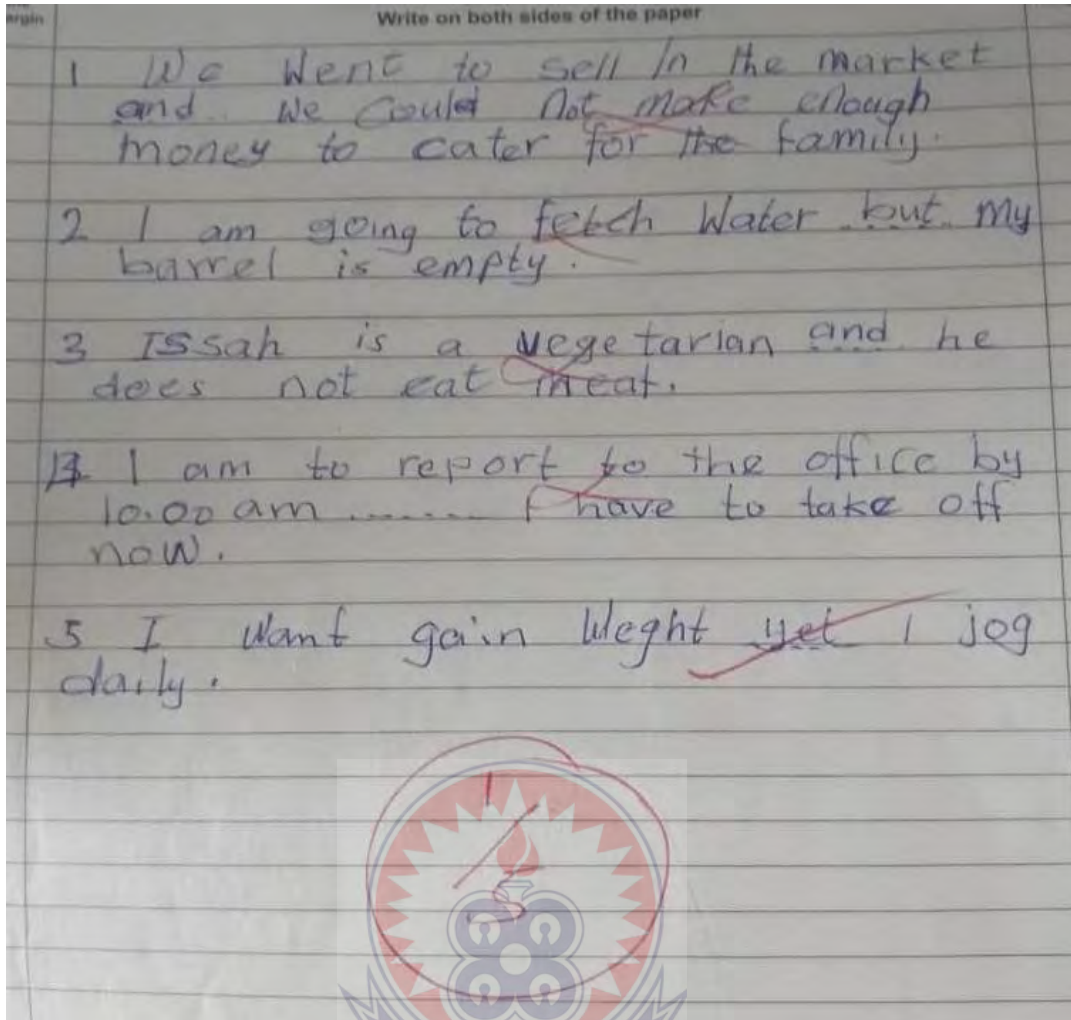 argin
Write on both sides of the paper
1 We Went to sell In the market
and.. We Could Not make enough
money to cater for the family.
2 I am going to fetch Water ..but.. My
barrel is empty.
3 ISsah is a vegetarian and he
does not eat meat.
4 I am to report to the office by
10.00 am ........ I have to take off
now.
5 I Want gain Weght yet I jog
daily.
1
5